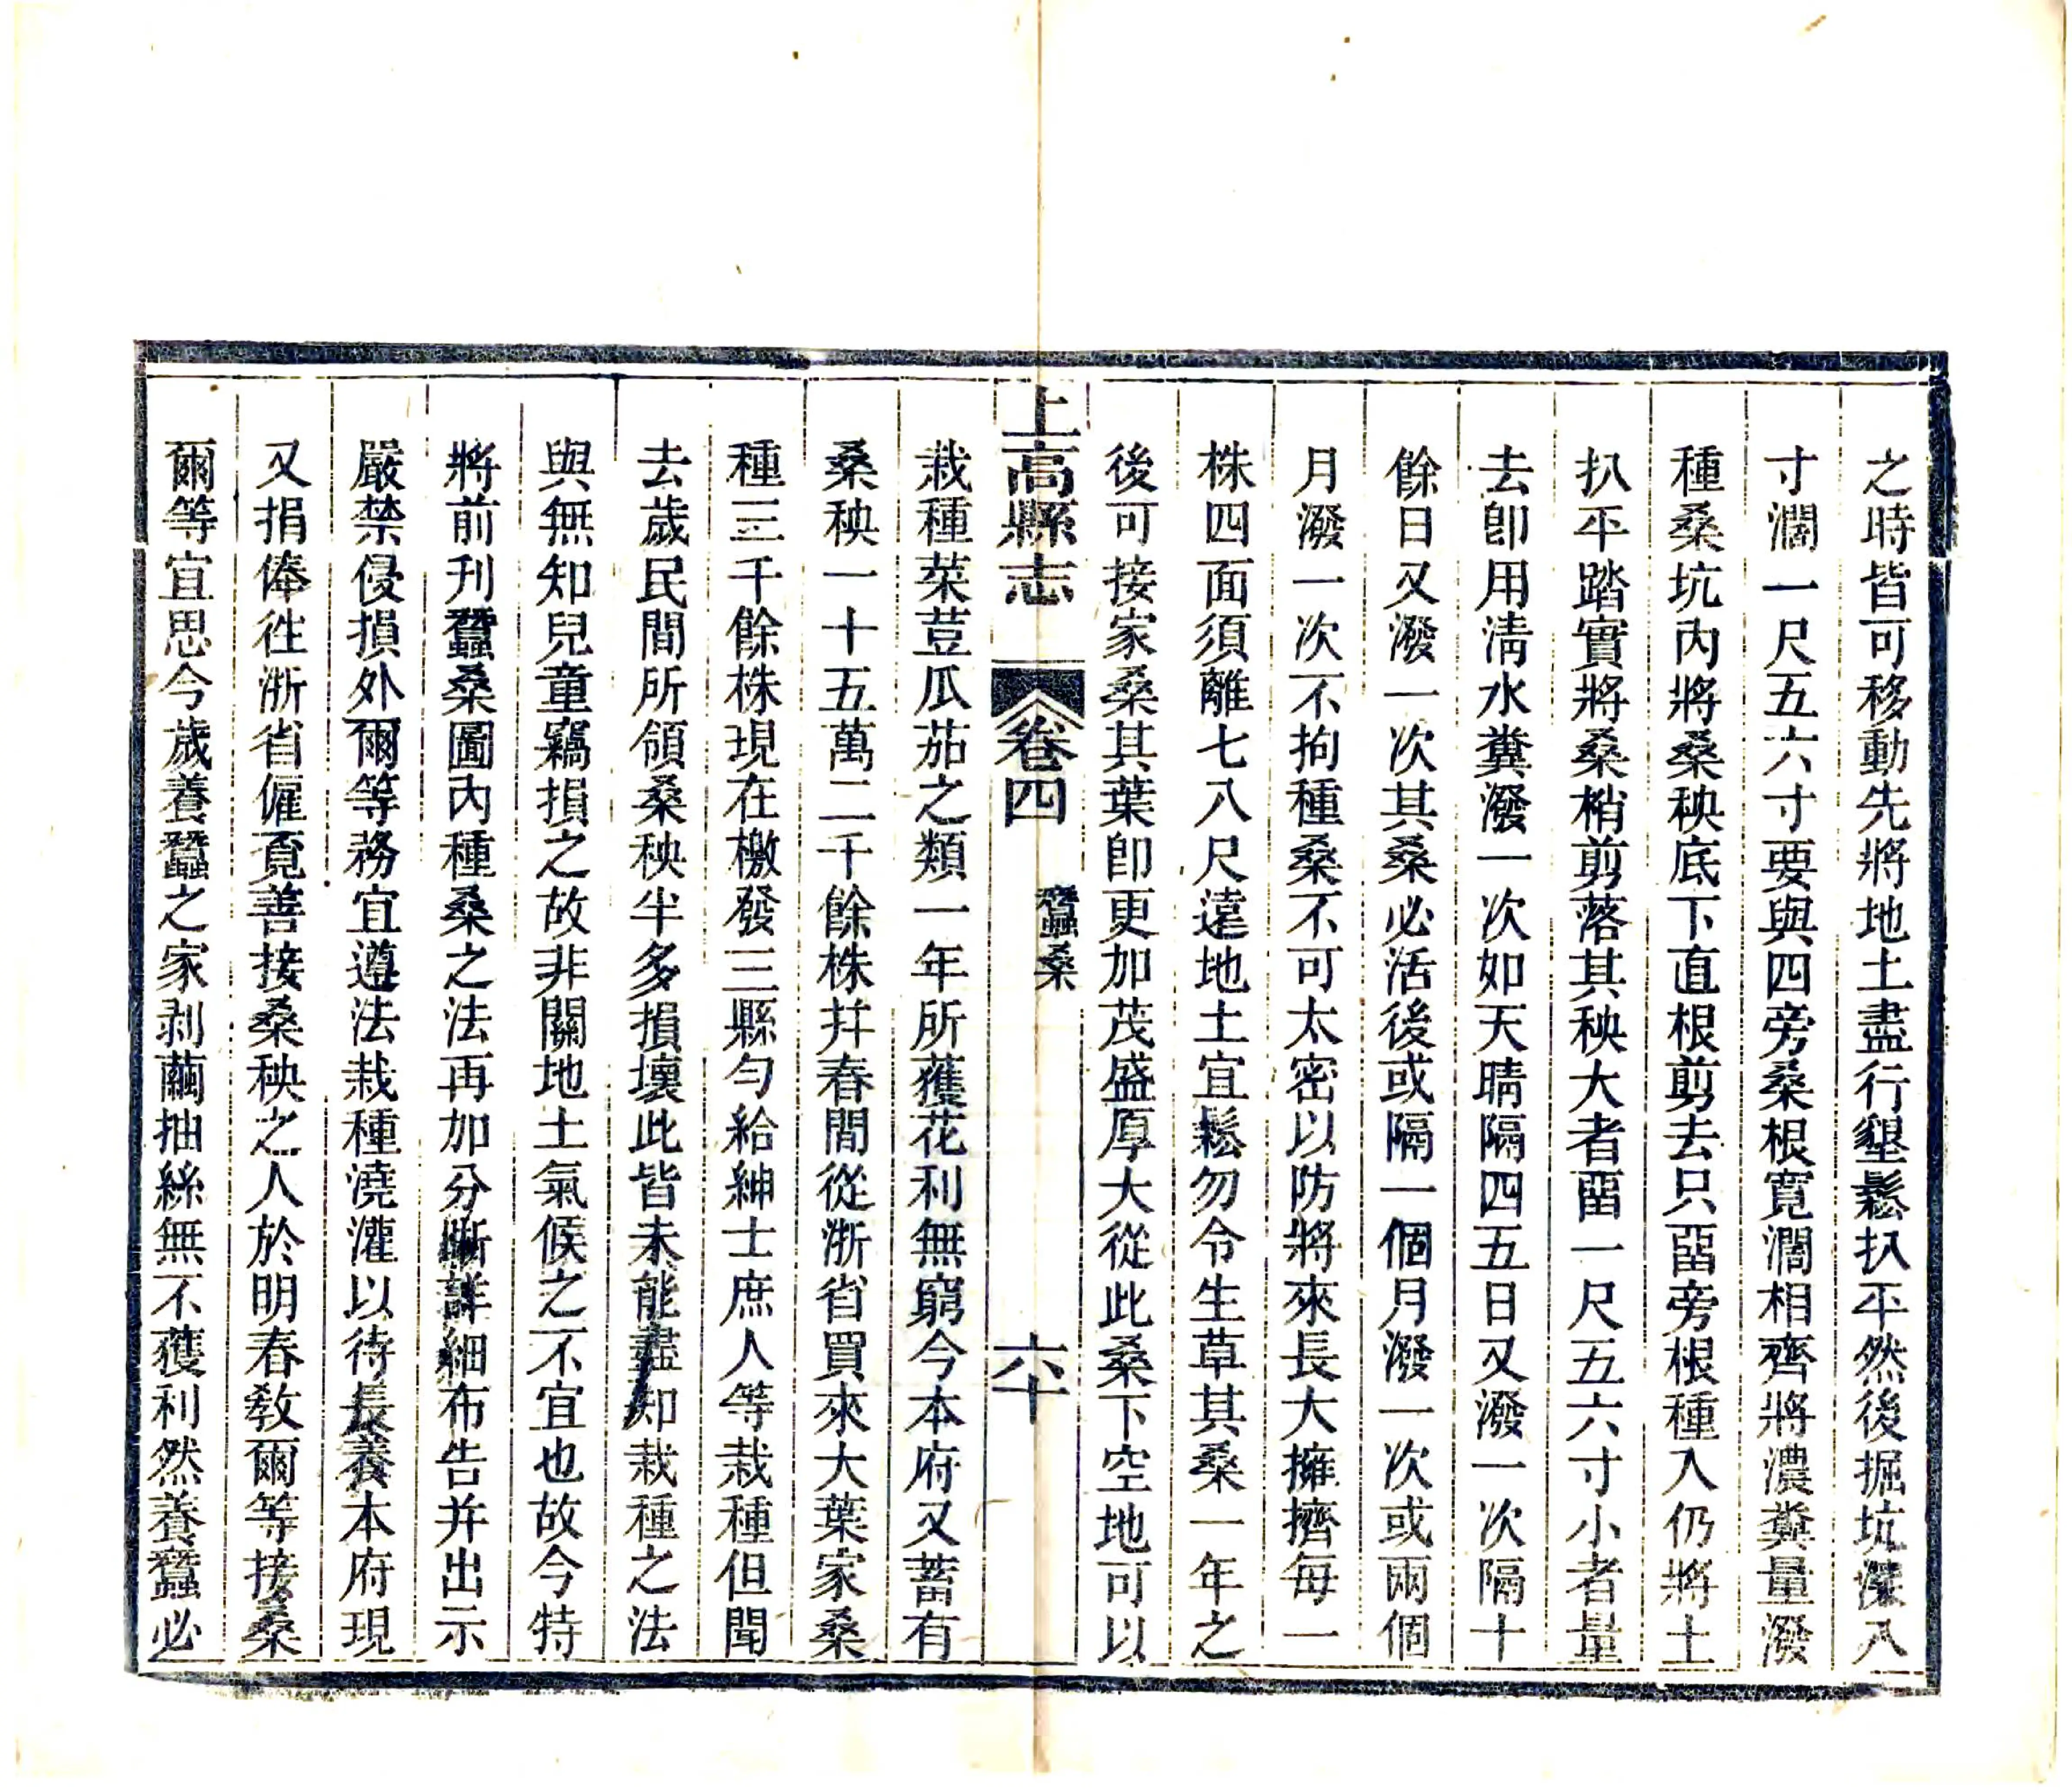 之時皆可移動先將地土盡行墾鬆扒平然後掘坑深八
寸濶一尺五六寸要與四旁桑根寬濶相齊將濃糞量潑
種桑坑內將桑秧底下直根剪去只畱旁根種入仍將土
扒平踏實將桑梢剪落其秧大者畱一尺五六寸小者量
去卽用淸水糞潑一次如天晴隔四五日又潑一次隔十
餘日又潑一次其桑必活後或隔一個月潑一次或兩個
月潑一次不拘種桑不可太密以防將來長大擁擠每一
株四面須離七八尺遠地土宜鬆勿令生草其桑一年之
後可接家桑其葉卽更加茂盛厚大從此桑下空地可以
上高縣志 卷四 蠶桑 六十
栽種菜荳瓜茄之類一年所獲花利無窮今本府又蓄有
桑秧一十五萬二千餘株幷春間從浙省買來大葉家桑
種三千餘株現在檄發三縣勻給紳士庶人等栽種但聞
去歲民間所領桑秧半多損壞此皆未能盡知栽種之法
與無知兒童竊損之故非關地土氣候之不宜也故今特
將前刊蠶桑圖內種桑之法再加分晰詳細布告并出示
嚴禁侵損外爾等務宜遵法栽種澆灌以待長養本府現
又捐俸徃浙省僱覔善接桑秧之人於明春敎爾等接桑
爾等宜思今歲養蠶之家剥繭抽絲無不獲利然養蠶必